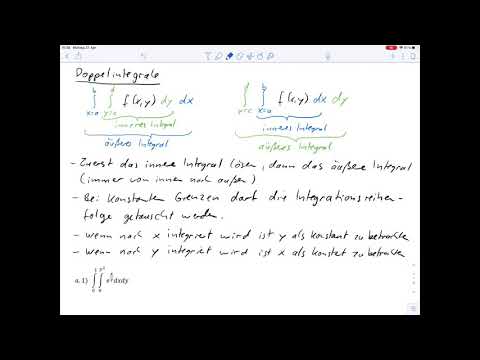 Doppelintegrale
b d
∫ ∫ f(x,y) dy dx
x=a y=c
d b
∫ ∫ f(x,y) dx dy
y=c x=a
inneres Integral
inneres Integral
äußeres Integral
äußeres Integral
- Zuerst das innere Integral lösen, dann das äußere Integral
(immer von innen nach außen)
- Bei konstanten Grenzen darf die Integrationsreihen-
folge getauscht werden.
- wenn nach x integriert wird ist y als konstant zu betrachten
- wenn nach y integriert wird ist x als konstant zu betrachten
a. 1)